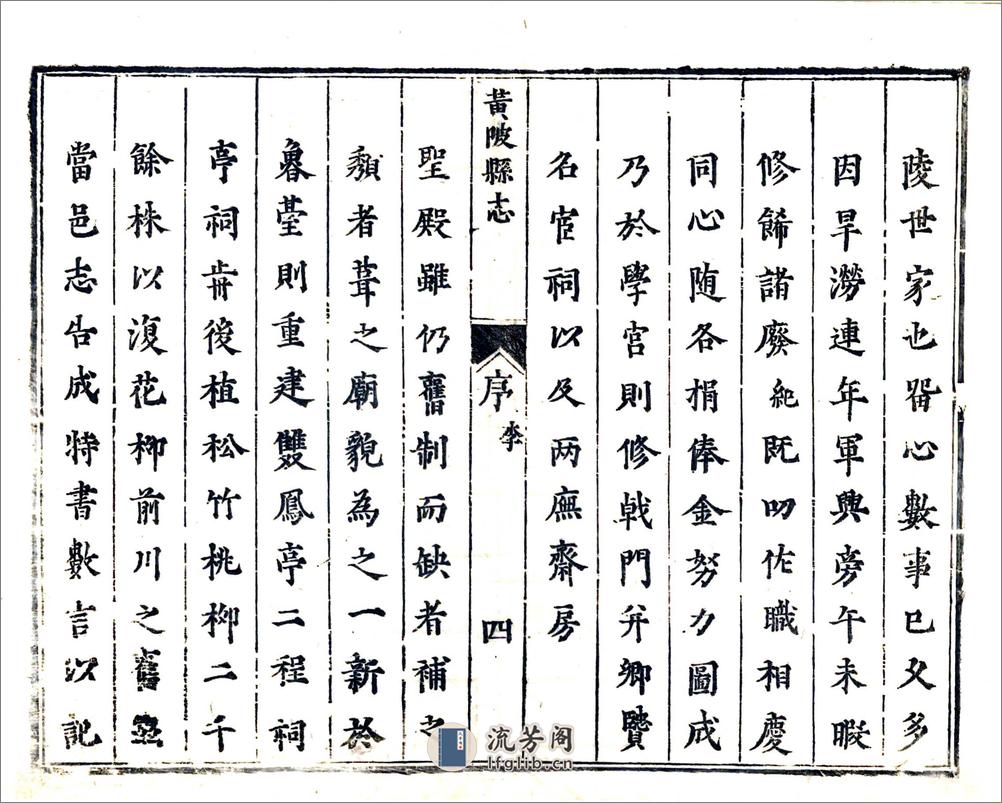 陵世家也畱心數事巳又多
因旱澇連年軍興旁午未暇
修餙諸廢
既叨作職相慶
同心随各捐俸金努力圖成
乃於學宫則修戟門并鄉賢
名宦祠以及两廡齋房
黃陂縣志
序
李
四
聖殿雖仍舊制而缺者補之
頹者葺之廟貌為之一新於
魯臺則重建雙鳳亭二程祠
亭祠前後植松竹桃柳二千
餘株以復花柳前川之舊
當邑志告成特書數言以記
流芳阁
lfglib.cn